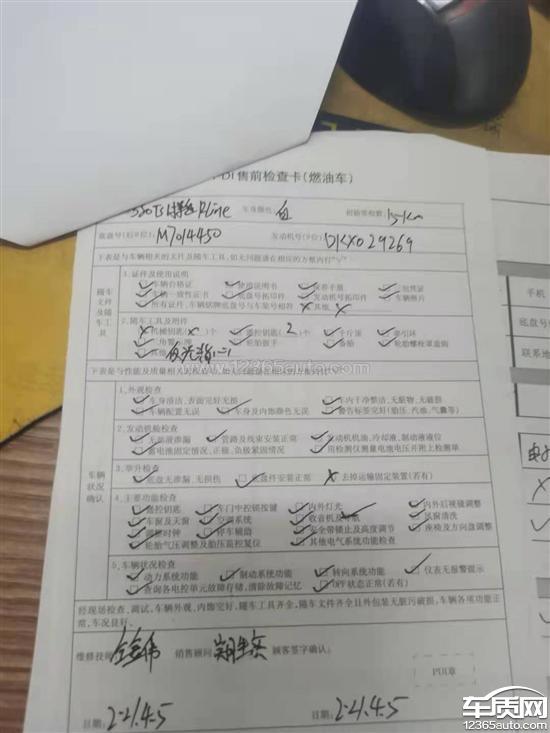 DI售前检查卡(燃油车)
车身颜色: 白 初始带检数: 15km
底盘号(后8位): M7014450 发动机号(9位): DKX029269
手机
底盘号
联系地
1.证件及使用说明
车辆合格证 使用说明书 保养手册 三包凭证
车辆一致性证书 底盘号拓印件 发动机号拓印件 车辆照片
所有证件、车辆铭牌底盘号与车架号相符 其他
随车文件及随车工具
2.随车工具及附件
机械钥匙( )个 遥控钥匙( 2 )个 千斤顶 牵引环
三角警示牌 轮胎扳手 备胎 轮胎螺栓罩盖钩
其他
www.12365auto.com
1.外观检查
车身清洁、表面完好无损 车内干净整洁、无脏物、无破损
车辆配置无误 车身及内饰颜色无误 警告标签完好(胎压、汽油、气囊等)
2.发动机舱检查
无油液渗漏 管路及线束安装正常 发动机机油、冷却液、制动液液位
蓄电池固定情况、正极、负极紧固情况 用检测仪测量电池电压并附上检测单
车辆状况确认
3.举升检查
底盘无渗漏、无损伤 底盘件安装正常 去掉运输固定装置(若有)
4.主要功能检查
遥控钥匙 车门中控锁按键 内外灯光 内外后视镜调整
车窗及天窗 空调系统 收音机及导航 风窗清洗
调整时钟 停车辅助 安全带锁止及高度调节 座椅及方向盘调整
轮胎气压调整及胎压监控复位 其他电气系统功能检查
5.车辆状况检查
动力系统功能 制动系统功能 转向系统功能 仪表无报警提示
查询各电控单元故障存储,清除故障记忆 OPF状态正常(若有)
经现场检查、调试,车辆外观、内饰完好,随车工具齐全,随车文件齐全且外包装无脏污破损,车辆各项功能正常,车况良好。
维修技师: 销售顾问: 顾客签字确认:
PDI章
日期: 2-21.4.5 日期: 2-21.4.5
车质网
12365auto.com